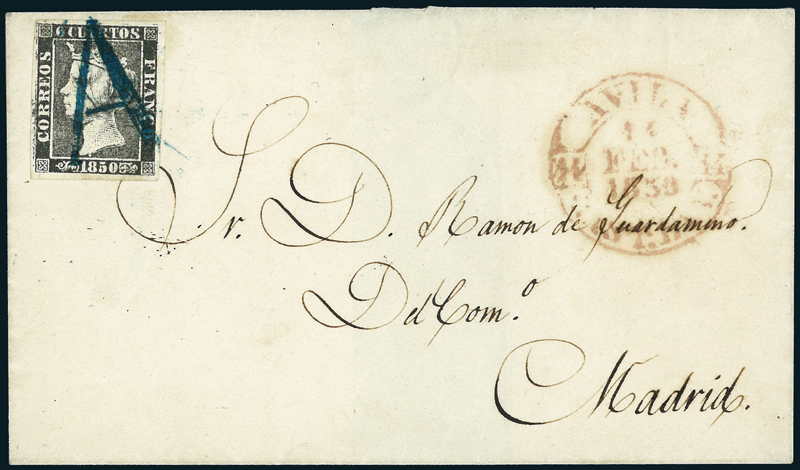 6 CUARTOS
CORREOS
FRANCO
1850
A
AVILA
FEB.
Sr. D. Ramon de Guardamino.
Del Com.º
Madrid.